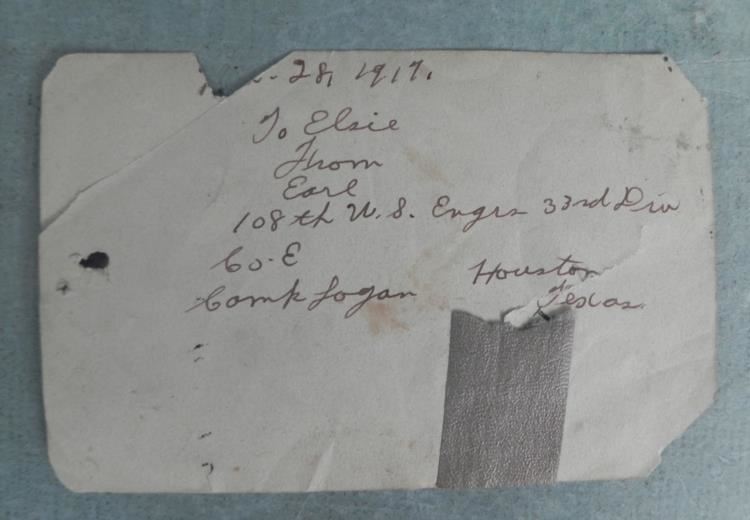 28, 1917.
To Elsie
From
Earl
108th U.S. Engrs 33rd Div
Co. E
Camp Logan Houston
Texas.